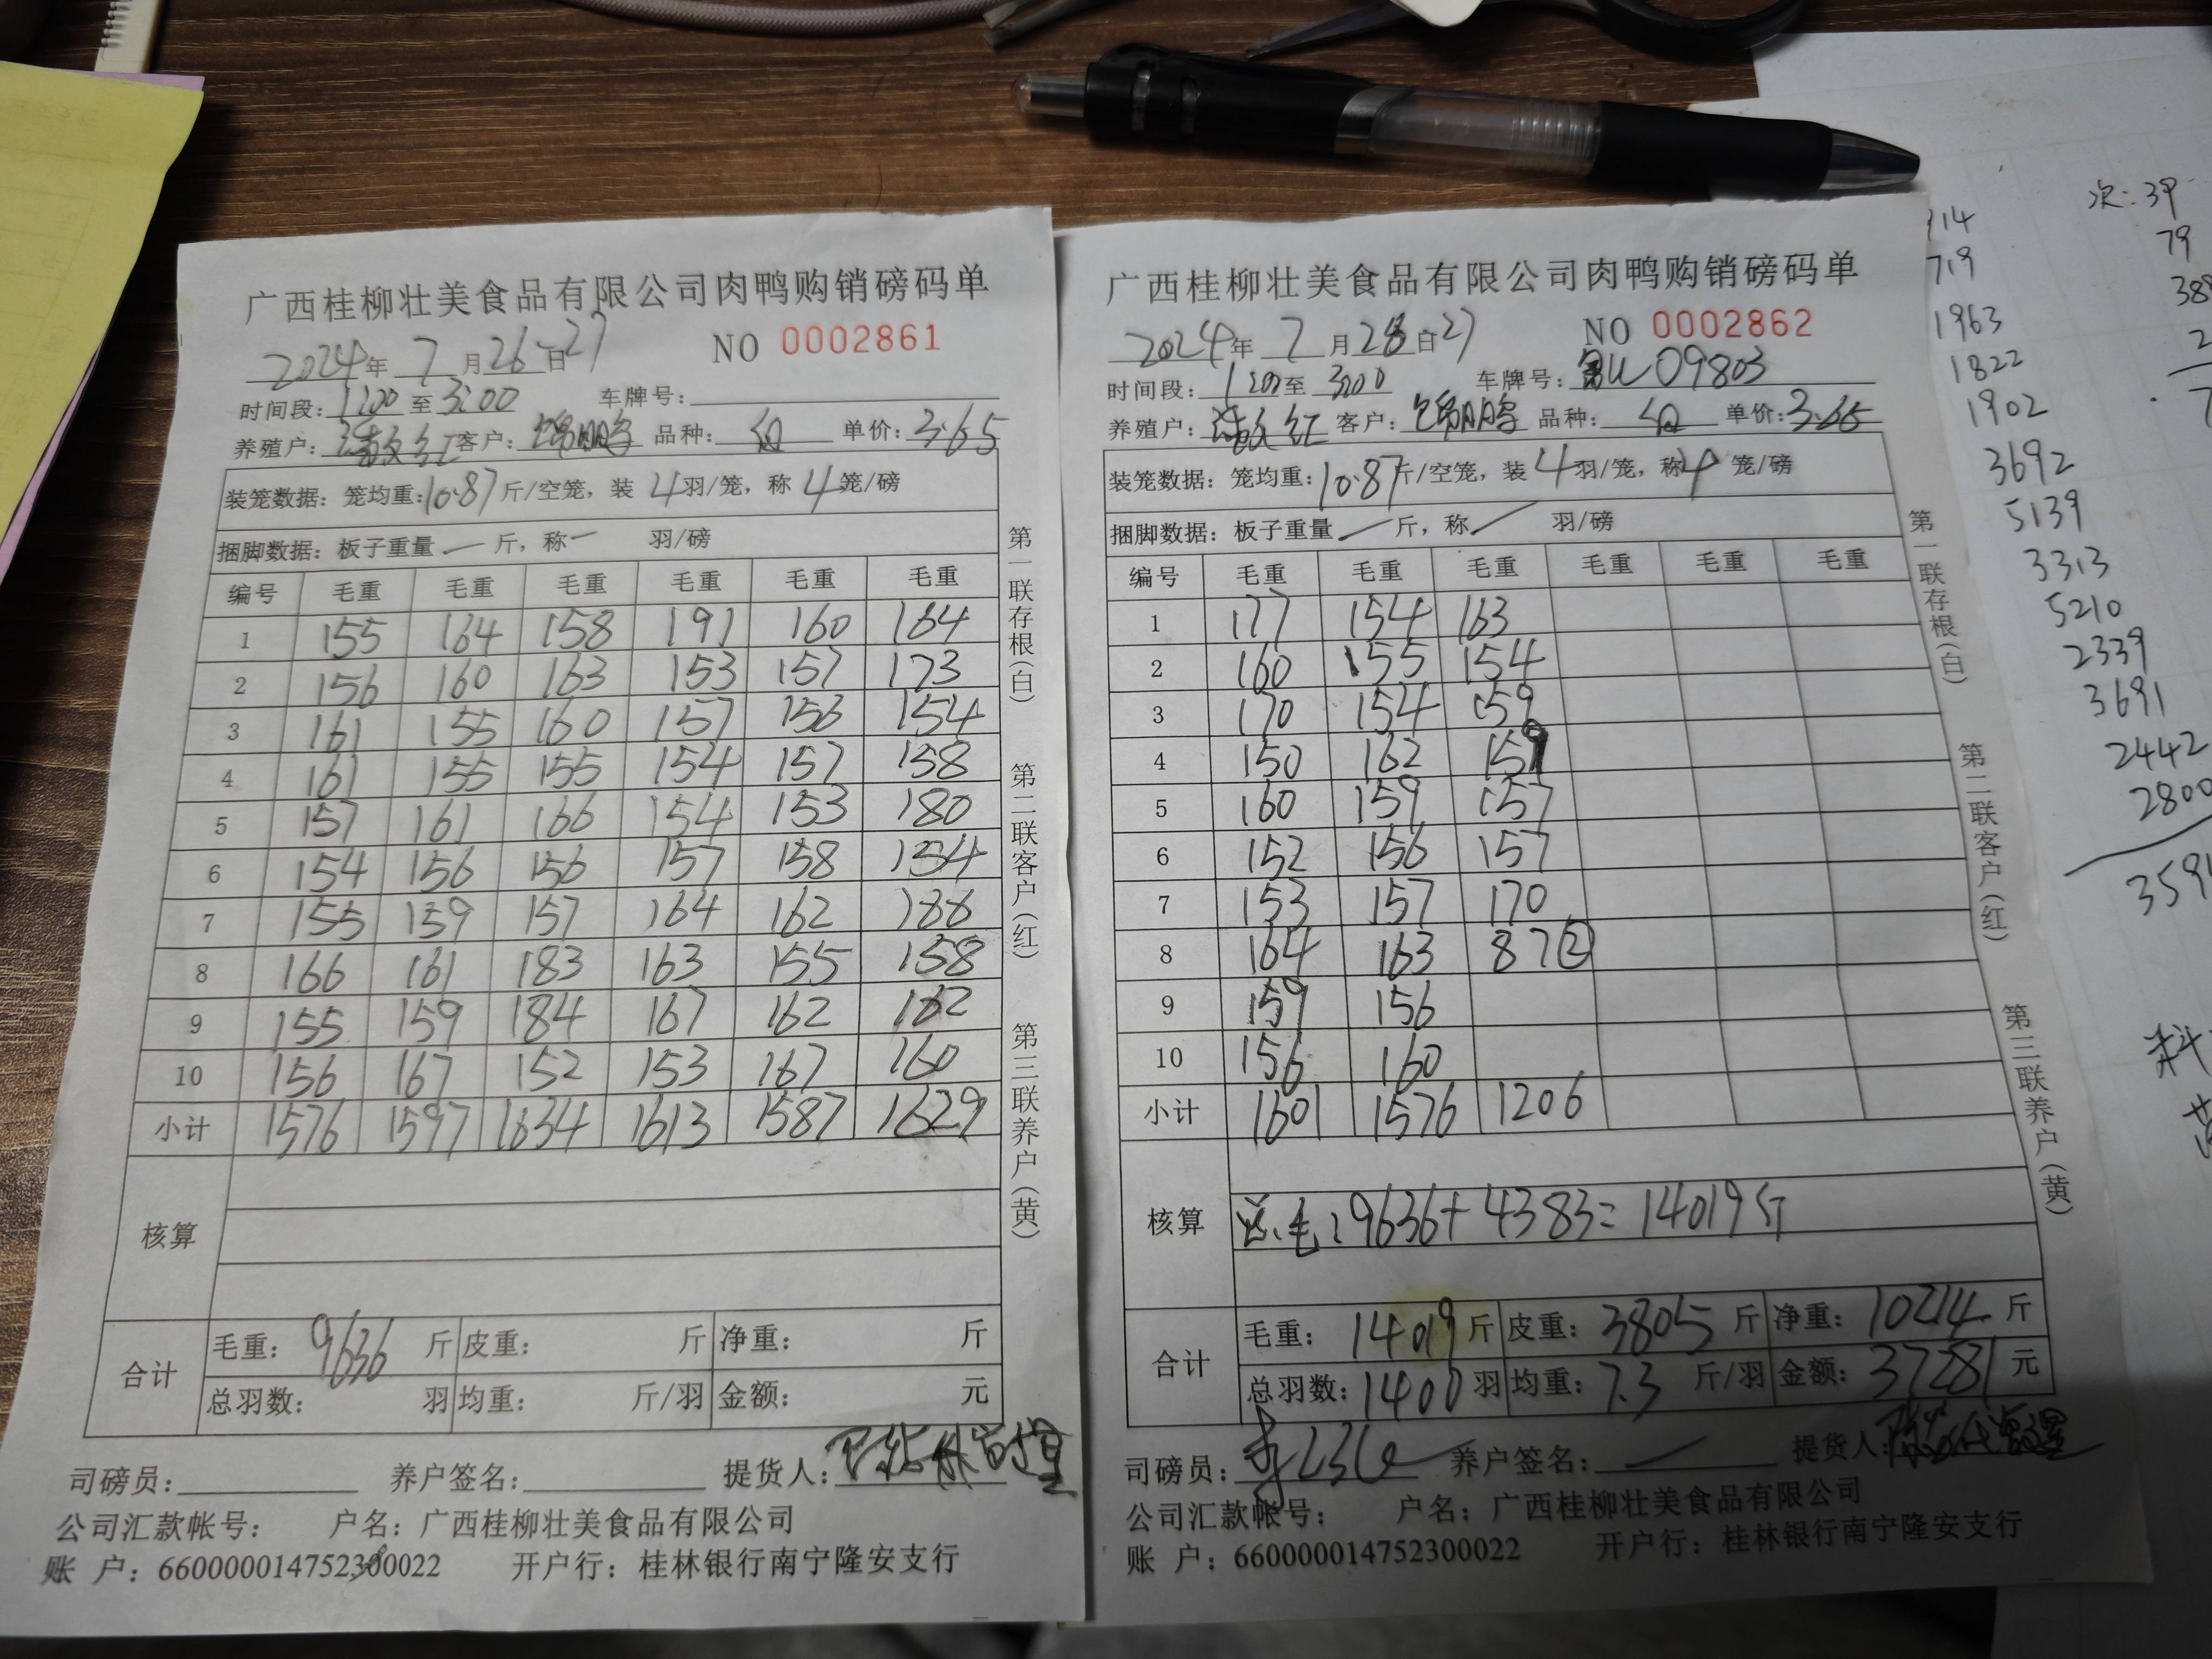 广西桂柳壮美食品有限公司肉鸭购销磅码单
2024年 7 月 26 日 27 NO 0002861
时间段: 1:00 至 3:00 车牌号:
养殖户: 红 客户: 鹏 品种: 单价: 3.65
装笼数据: 笼均重: 10.87 斤/空笼, 装 4 羽/笼, 称 4 笼/磅
捆脚数据: 板子重量 — 斤, 称 — 羽/磅
编号 毛重 毛重 毛重 毛重 毛重 毛重
1 155 164 158 191 160 164
2 156 160 163 153 157 173
3 161 155 160 157 156 154
4 161 155 155 154 157 158
5 157 161 166 154 153 180
6 154 156 156 157 158 134
7 155 159 157 164 162 188
8 166 161 183 163 155 158
9 155 159 184 167 162 162
10 156 167 152 153 167 160
小计 1576 1597 1634 1613 1587 1629
核算
合计 毛重: 9636 斤 皮重: 斤 净重: 斤
总羽数: 羽 均重: 斤/羽 金额: 元
司磅员: 养户签名: 提货人:
公司汇款帐号: 户名: 广西桂柳壮美食品有限公司
账 户: 660000014752300022 开户行: 桂林银行南宁隆安支行
第一联存根(白) 第二联客户(红) 第三联养户(黄)
广西桂柳壮美食品有限公司肉鸭购销磅码单
2024年 7 月 28 日 27 NO 0002862
时间段: 1:00 至 3:00 车牌号: U09803
养殖户: 红 客户: 鹏 品种: 单价: 3.65
装笼数据: 笼均重: 10.87 斤/空笼, 装 4 羽/笼, 称 4 笼/磅
捆脚数据: 板子重量 — 斤, 称 / 羽/磅
编号 毛重 毛重 毛重 毛重 毛重 毛重
1 177 154 163
2 160 155 154
3 170 154 159
4 150 162 159
5 160 159 157
6 152 156 157
7 153 157 170
8 164 163 87②
9 159 156
10 156 160
小计 1601 1576 1206
核算 总毛: 9636+4383=14019斤
合计 毛重: 14019 斤 皮重: 3805 斤 净重: 10214 斤
总羽数: 1400 羽 均重: 7.3 斤/羽 金额: 37281 元
司磅员: 养户签名: 提货人:
公司汇款帐号: 户名: 广西桂柳壮美食品有限公司
账 户: 660000014752300022 开户行: 桂林银行南宁隆安支行
第一联存根(白) 第二联客户(红) 第三联养户(黄)
次: 39
79
719
1963
1822
1902
3692
5139
3313
5210
2339
3691
2442
2800